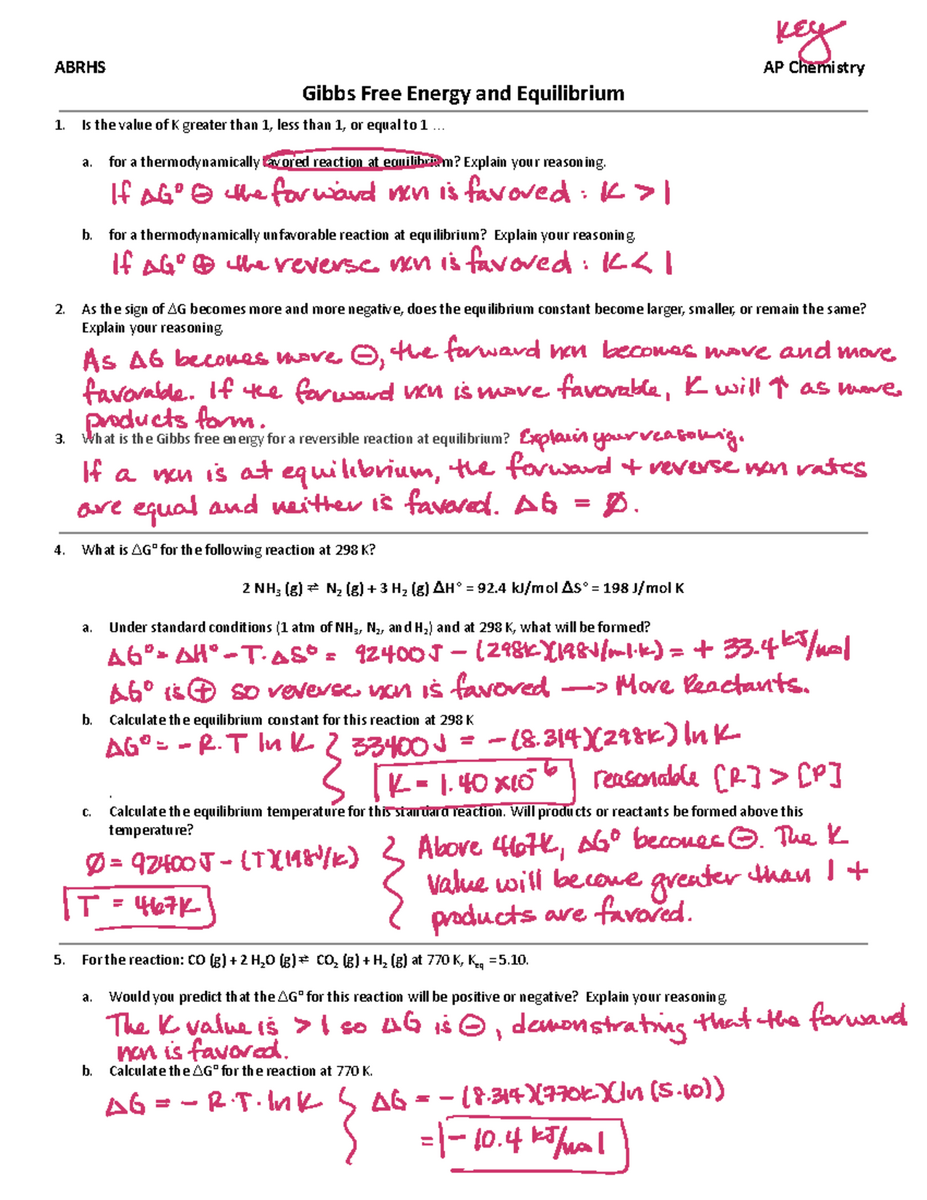 KEY
ABRHS AP Chemistry
Gibbs Free Energy and Equilibrium
1. Is the value of K greater than 1, less than 1, or equal to 1 …
a. for a thermodynamically favored reaction at equilibrium? Explain your reasoning.
If ΔG° ⊖ the forward rxn is favored : K > 1
b. for a thermodynamically unfavorable reaction at equilibrium? Explain your reasoning.
If ΔG° ⊕ the reverse rxn is favored : K < 1
2. As the sign of ΔG becomes more and more negative, does the equilibrium constant become larger, smaller, or remain the same?
Explain your reasoning.
As ΔG becomes more ⊖, the forward rxn becomes more and more
favorable. If the forward rxn is more favorable, K will ↑ as more
products form.
3. What is the Gibbs free energy for a reversible reaction at equilibrium? Explain your reasoning.
If a rxn is at equilibrium, the forward + reverse rxn rates
are equal and neither is favored. ΔG = Ø.
4. What is ΔG° for the following reaction at 298 K?
2 NH₃ (g) ⇌ N₂ (g) + 3 H₂ (g) ΔH° = 92.4 kJ/mol ΔS° = 198 J/mol K
a. Under standard conditions (1 atm of NH₃, N₂, and H₂) and at 298 K, what will be formed?
ΔG° = ΔH° - T·ΔS° = 92400J - (298K)(198J/mol·K) = + 33.4 kJ/mol
ΔG° is ⊕ so reverse rxn is favored —> More Reactants.
b. Calculate the equilibrium constant for this reaction at 298 K
ΔG° = -R·T ln K } 33400J = -(8.314)(298K) ln K
K = 1.40 x 10⁻⁶ reasonable [R] > [P]
c. Calculate the equilibrium temperature for this standard reaction. Will products or reactants be formed above this
temperature?
Ø = 92400J - (T)(198J/K)
T = 467K
Above 467K, ΔG° becomes ⊖. The K
value will become greater than 1 +
products are favored.
5. For the reaction: CO (g) + 2 H₂O (g) ⇌ CO₂ (g) + H₂ (g) at 770 K, Keq = 5.10.
a. Would you predict that the ΔG° for this reaction will be positive or negative? Explain your reasoning.
The K value is > 1 so ΔG is ⊖, demonstrating that the forward
rxn is favored.
b. Calculate the ΔG° for the reaction at 770 K.
ΔG = - R·T·ln K } ΔG = -(8.314)(770K)(ln (5.10))
= -10.4 kJ/mol